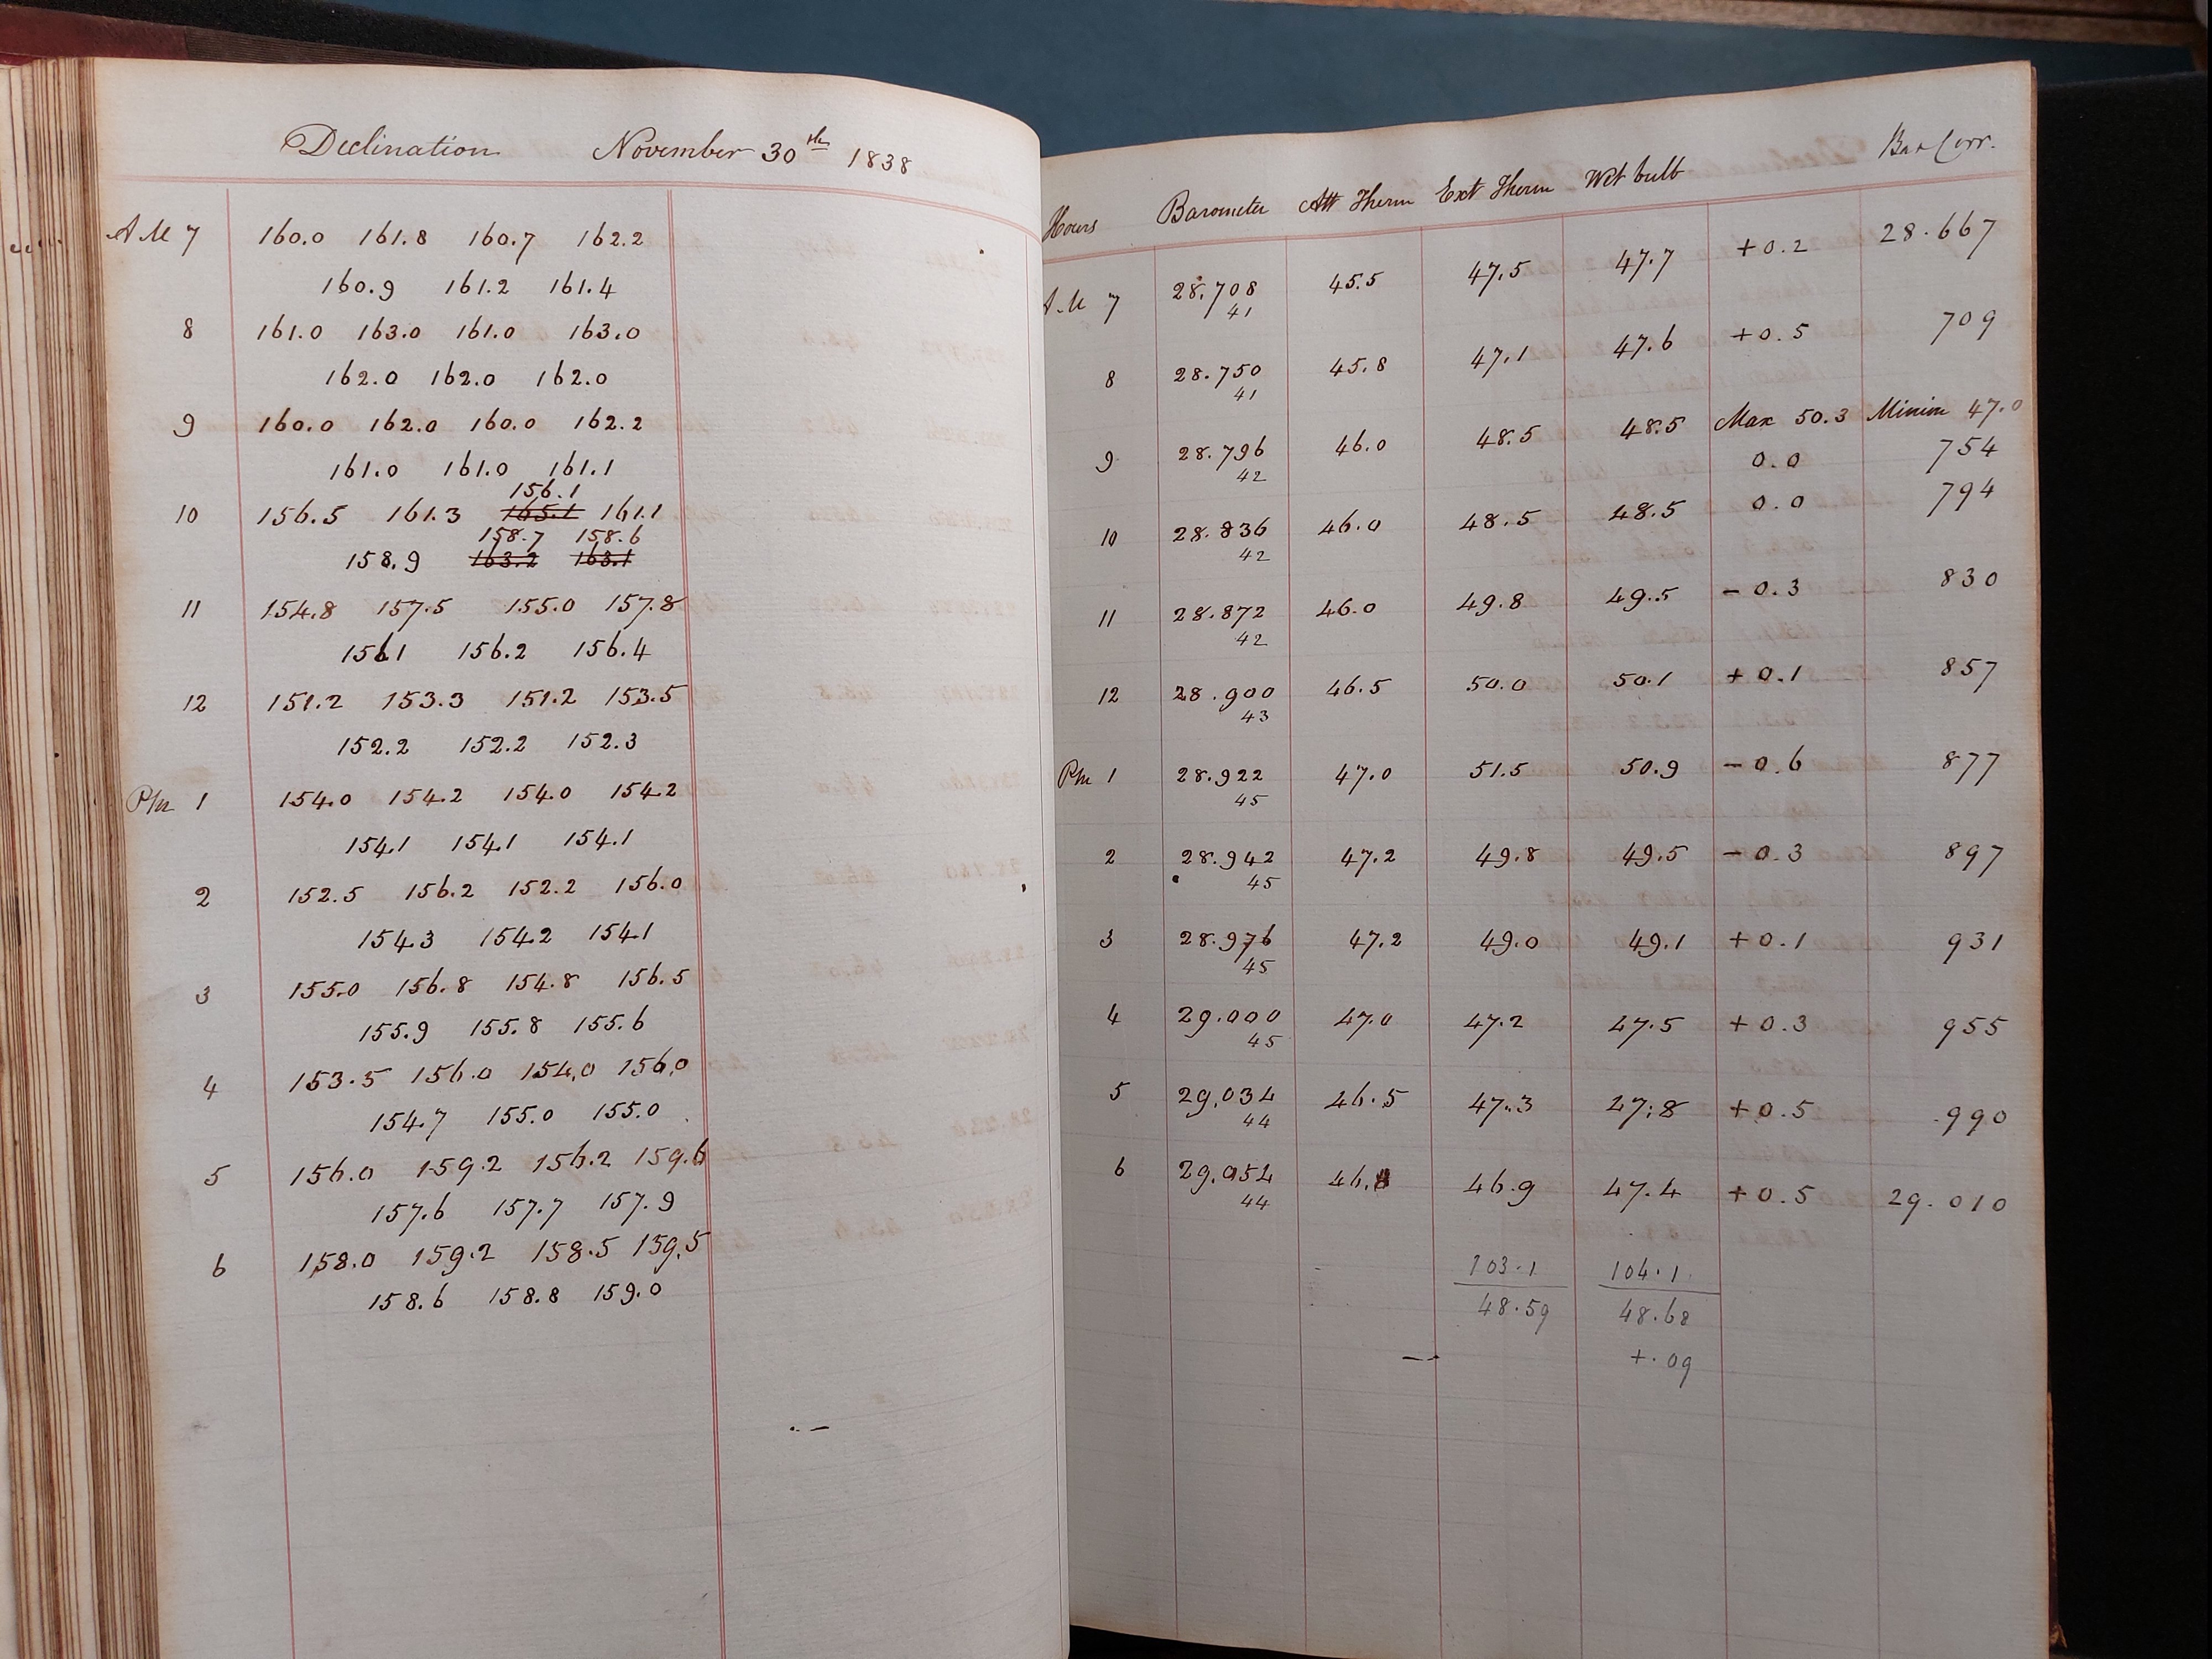 Declination November 30th 1838
A M 7 160.0 161.8 160.7 162.2
160.9 161.2 161.4
8 161.0 163.0 161.0 163.0
162.0 162.0 162.0
9 160.0 162.0 160.0 162.2
161.0 161.0 161.1
156.1
10 156.5 161.3 165.1 161.1
158.7 158.6
158.9 163.2 163.1
11 154.8 157.5 155.0 157.8
156.1 156.2 156.4
12 151.2 153.3 151.2 153.5
152.2 152.2 152.3
Pm 1 154.0 154.2 154.0 154.2
154.1 154.1 154.1
2 152.5 156.2 152.2 156.0
154.3 154.2 154.1
3 155.0 156.8 154.8 156.5
155.9 155.8 155.6
4 153.5 156.0 154.0 156.0
154.7 155.0 155.0
5 156.0 159.2 156.2 159.6
157.6 157.7 157.9
6 158.0 159.2 158.5 159.5
158.6 158.8 159.0
Hours Barometer Att Therm Ext Therm Wet bulb Bar Corr.
A M 7 28.708 45.5 47.5 47.7 +0.2 28.667
41
8 28.750 45.8 47.1 47.6 +0.5 709
41
Max 50.3 Minim 47.0
9 28.796 46.0 48.5 48.5 0.0 754
42
10 28.836 46.0 48.5 48.5 0.0 794
42
11 28.872 46.0 49.8 49.5 -0.3 830
42
12 28.900 46.5 50.0 50.1 +0.1 857
43
Pm 1 28.922 47.0 51.5 50.9 -0.6 877
45
2 28.942 47.2 49.8 49.5 -0.3 897
45
3 28.976 47.2 49.0 49.1 +0.1 931
45
4 29.000 47.0 47.2 47.5 +0.3 955
45
5 29.034 46.5 47.3 47.8 +0.5 990
44
6 29.054 46.9 47.4 +0.5 29.010
44
103.1 104.1
48.59 48.68
+.09